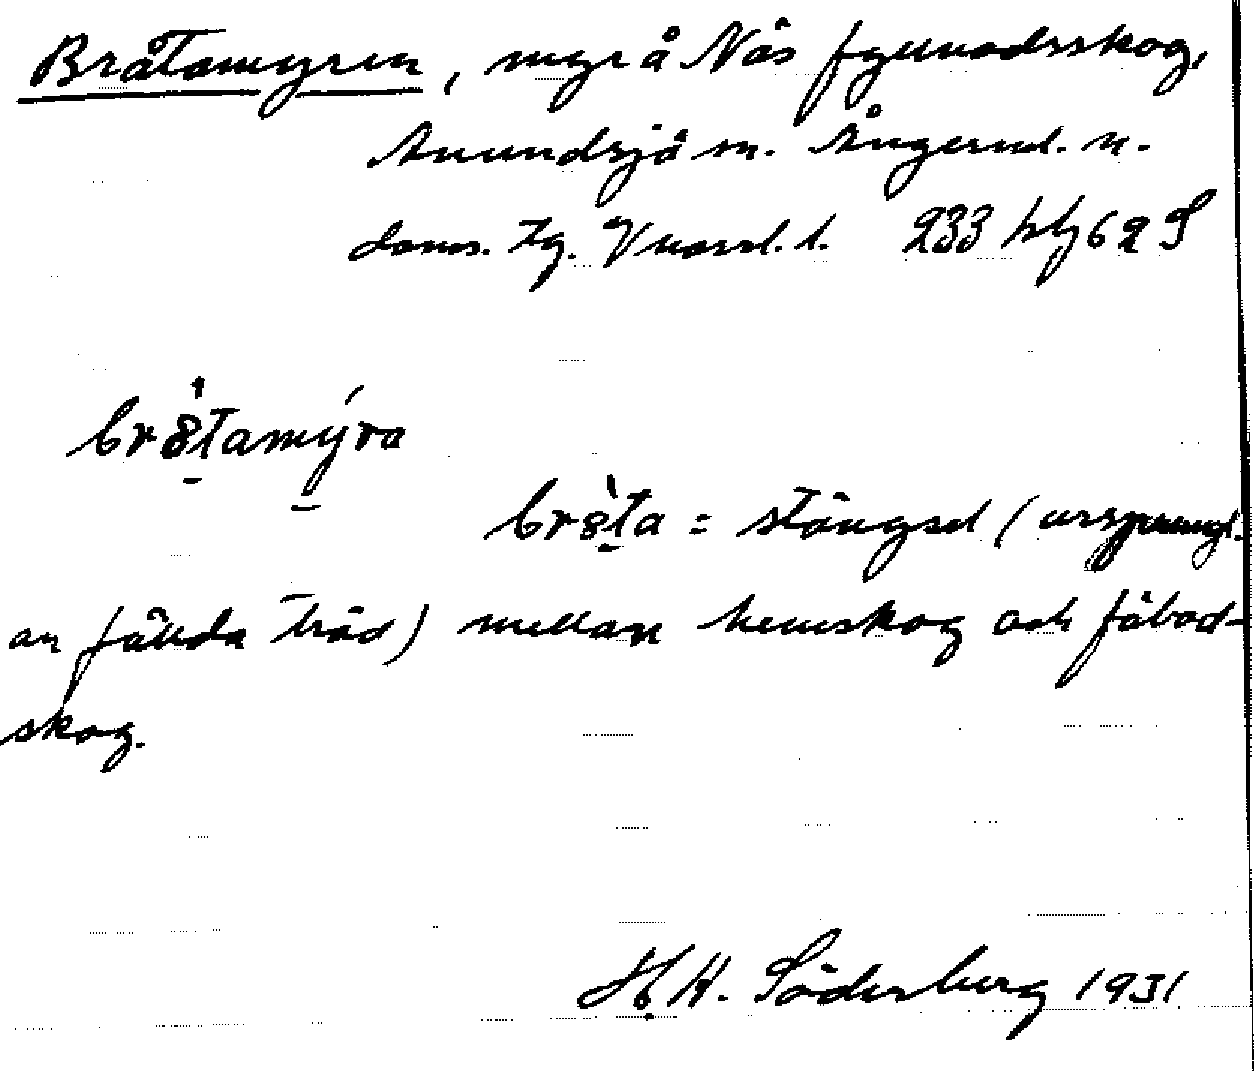 Bråtamyren, myr å Näs fgunodsskog,
Anundsjö sn. Ångerml. n.
doms. tg. Vnorrl. l. 233 hbj 62 S
br8̀tamýra
br8̀ta = stängsel (ursprungl.
av fällda träd) mellan hemskog och fäbod-
skog.
H. H. Söderberg 1931